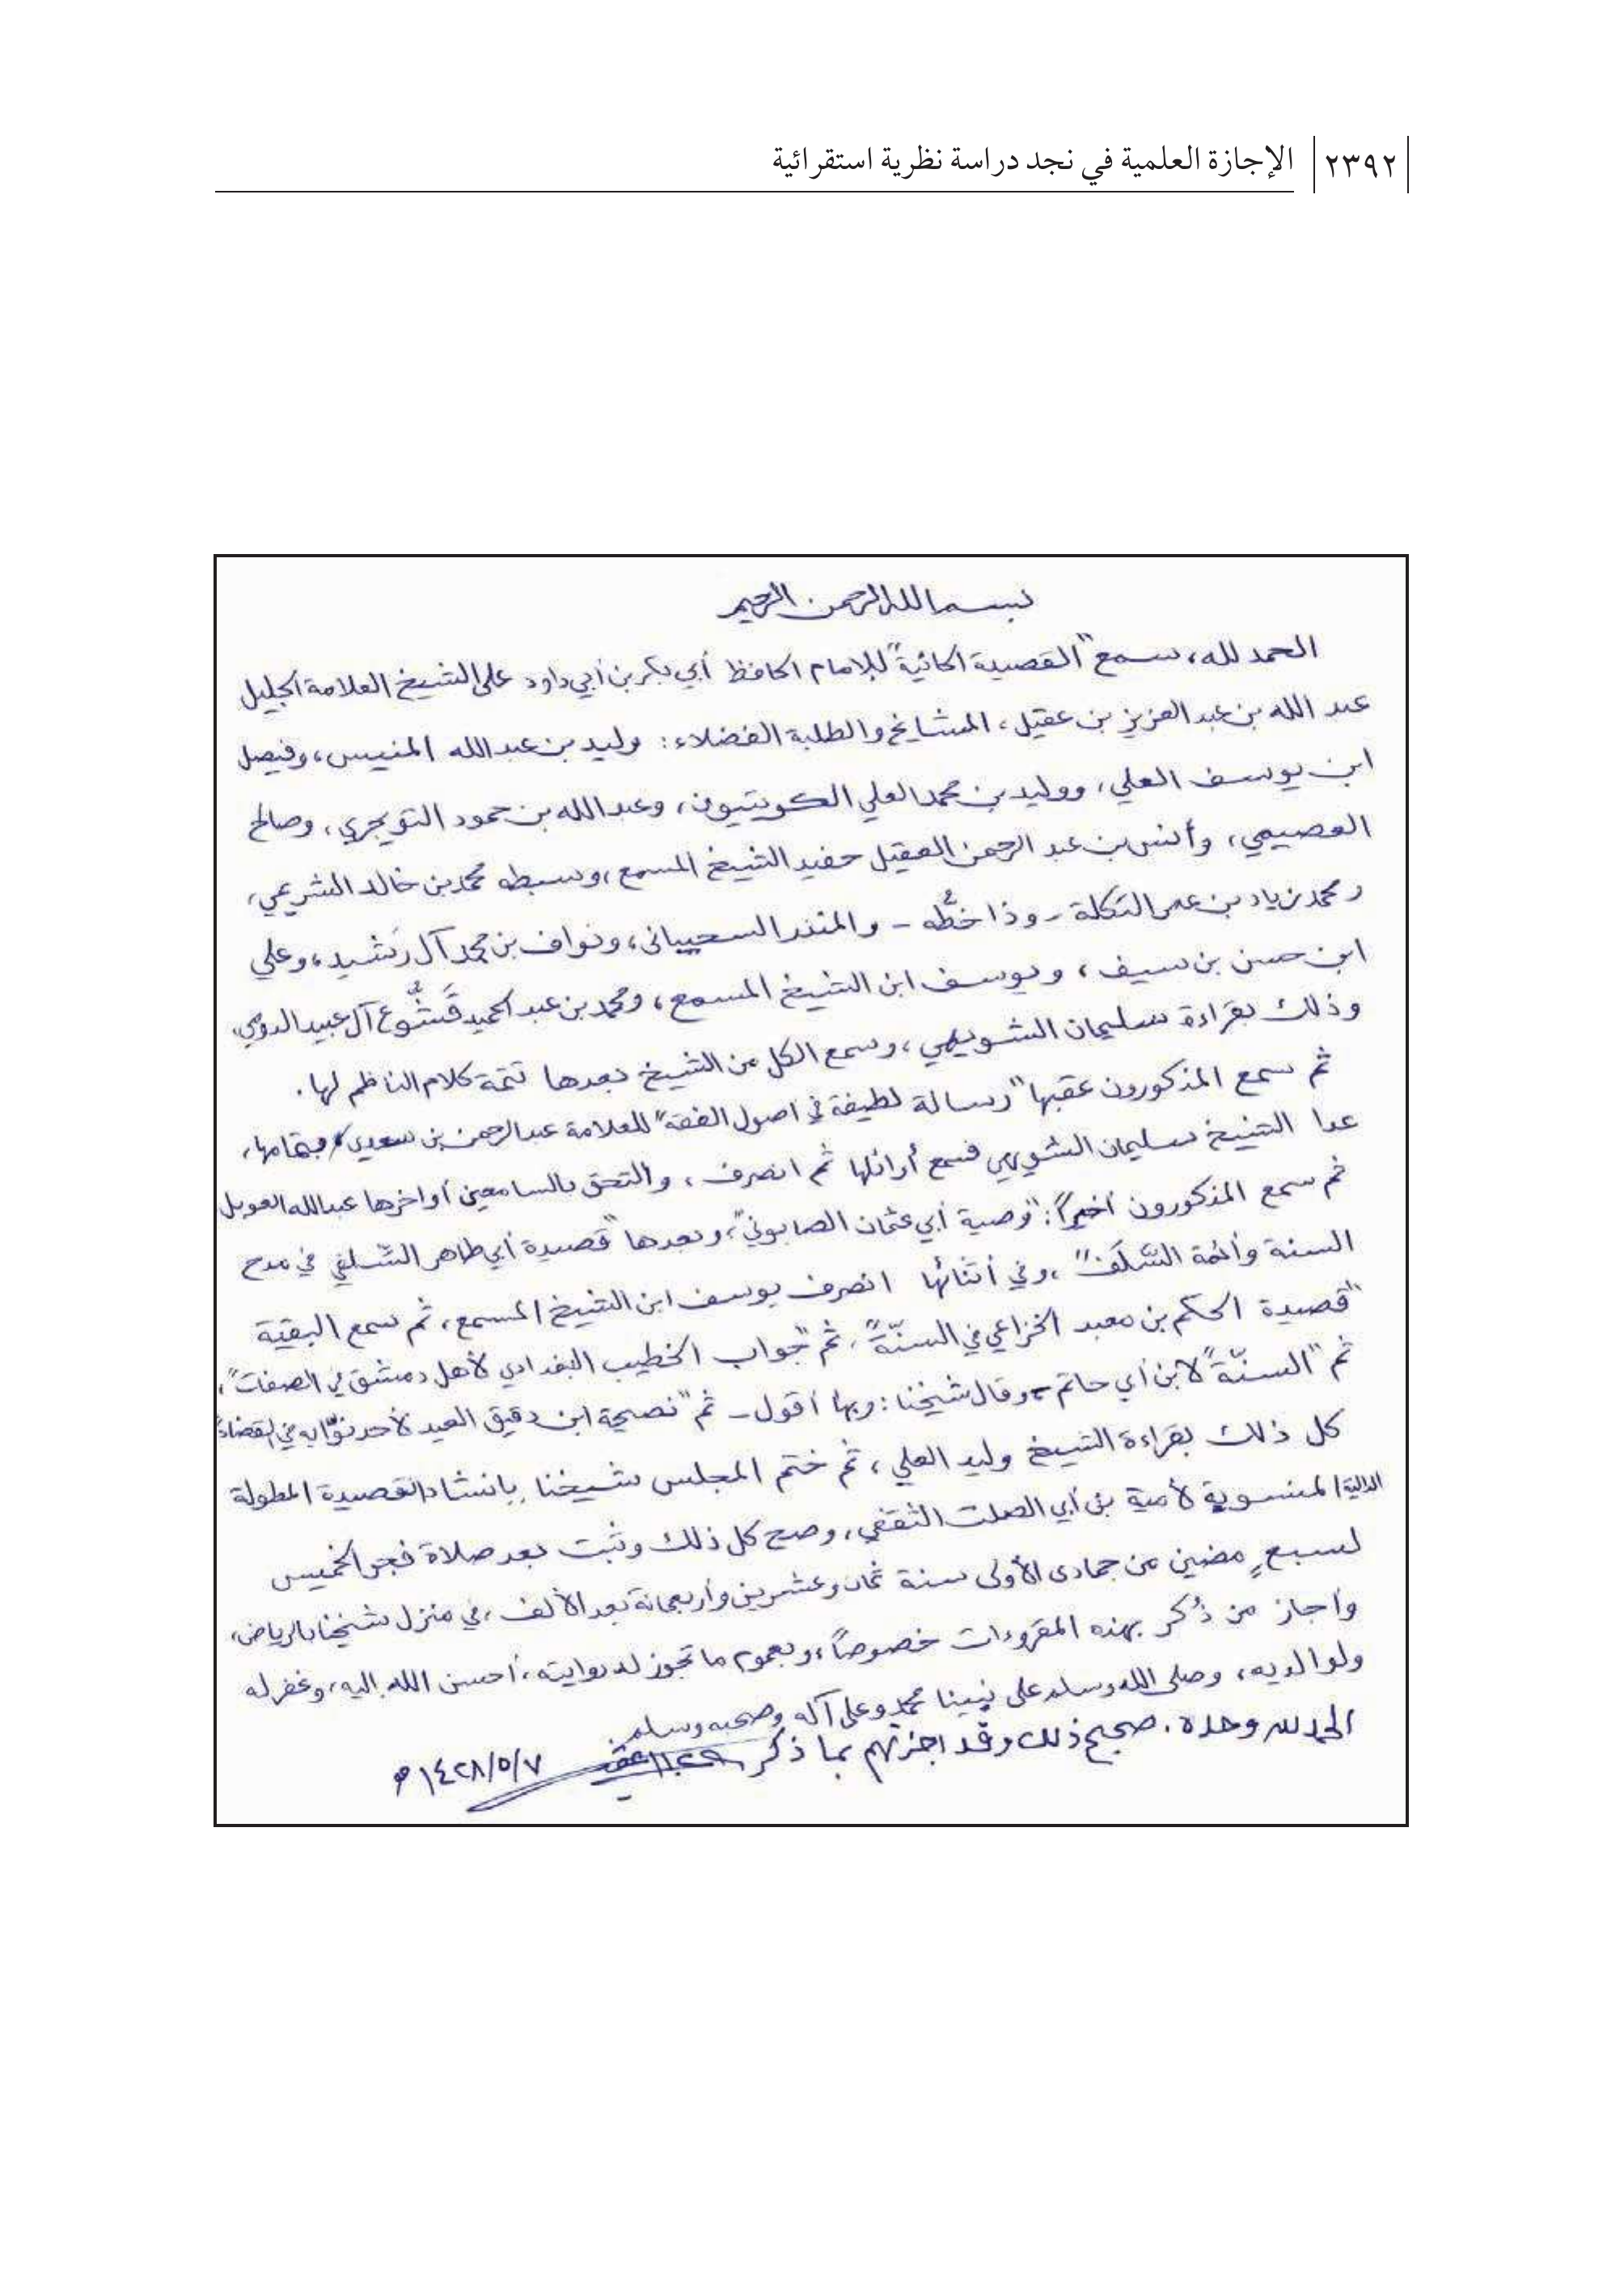 ٢٣٩٢ الإجازة العلمية في نجد دراسة نظرية استقرائية
بسم الله الرحمن الرحيم
الحمد لله، سمع "القصيدة الحائية" للإمام الحافظ أبي بكر بن أبي داود على الشيخ العلامة الجليل
عبد الله بن عبد العزيز بن عقيل، المشايخ والطلبة الفضلاء: وليد بن عبد الله المنيس، وفيصل
ابن يوسف العلي، ووليد بن محمد العلي الكويتيون، وعبد الله بن حمود التويجري، وصالح
العصيمي، وأنس بن عبد الرحمن العقيل حفيد الشيخ المسمع، وسبطه محمد بن خالد الشريمي،
ومحمد زياد بن عمر التكلة - وذا خطُّه - والمنذر السحيباني، ونواف بن محمد آل رَشيد، وعلي
ابن حسن بن سيف، ويوسف ابن الشيخ المسمع، ومحمد بن عبد الحميد قَشُّوع آل عبيد الدومي،
وذلك بقراءة سليمان الشويهي، وسمع الكل من الشيخ بعدها تتمة كلام الناظم لها.
ثم سمع المذكورون عقبها "رسالة لطيفة في اصول الفقه" للعلامة عبد الرحمن بن سعدي بتمامها،
عدا الشيخ سليمان الشويهي فسمع أوائلها ثم انصرف، والتحق بالسامعين أواخرها عبد الله العوبل
ثم سمع المذكورون أخيراً: "وصية أبي عثمان الصابوني"، وبعدها "قصيدة أبي طاهر السِّلفي في مدح
السنة وأئمة السَّلَف"، وفي أثنائها انصرف يوسف ابن الشيخ المسمع، ثم سمع البقية
"قصيدة الحكم بن معبد الخزاعي في السنّة"، ثم "جواب الخطيب البغدادي لأهل دمشق في الصفات"،
ثم "السنّة" لابن أبي حاتم - وقال شيخنا: وبها أقول - ثم "نصيحة ابن دقيق العيد لأحد نوّابه في القضاء"
كل ذلك بقراءة الشيخ وليد العلي، ثم ختم المجلس شيخنا بإنشاد القصيدة المطولة
الدالية المنسوبة لأمية بن أبي الصلت الثقفي، وصح كل ذلك وثبت بعد صلاة فجر الخميس
لسبعٍ مضين من جمادى الأولى سنة ثمان وعشرين وأربعمائة بعد الألف، في منزل شيخنا بالرياض،
وأجاز من ذُكر بهذه المقروءات خصوصاً، وبعموم ما تجوز له روايته، أحسن الله إليه، وغفر له
ولوالديه، وصلى الله وسلم على نبينا محمد وعلى آله وصحبه وسلم.
الحمد لله وحده. صحيح ذلك وقد اجزتهم بما ذكر ١٤٢٨/٥/٧ هـ